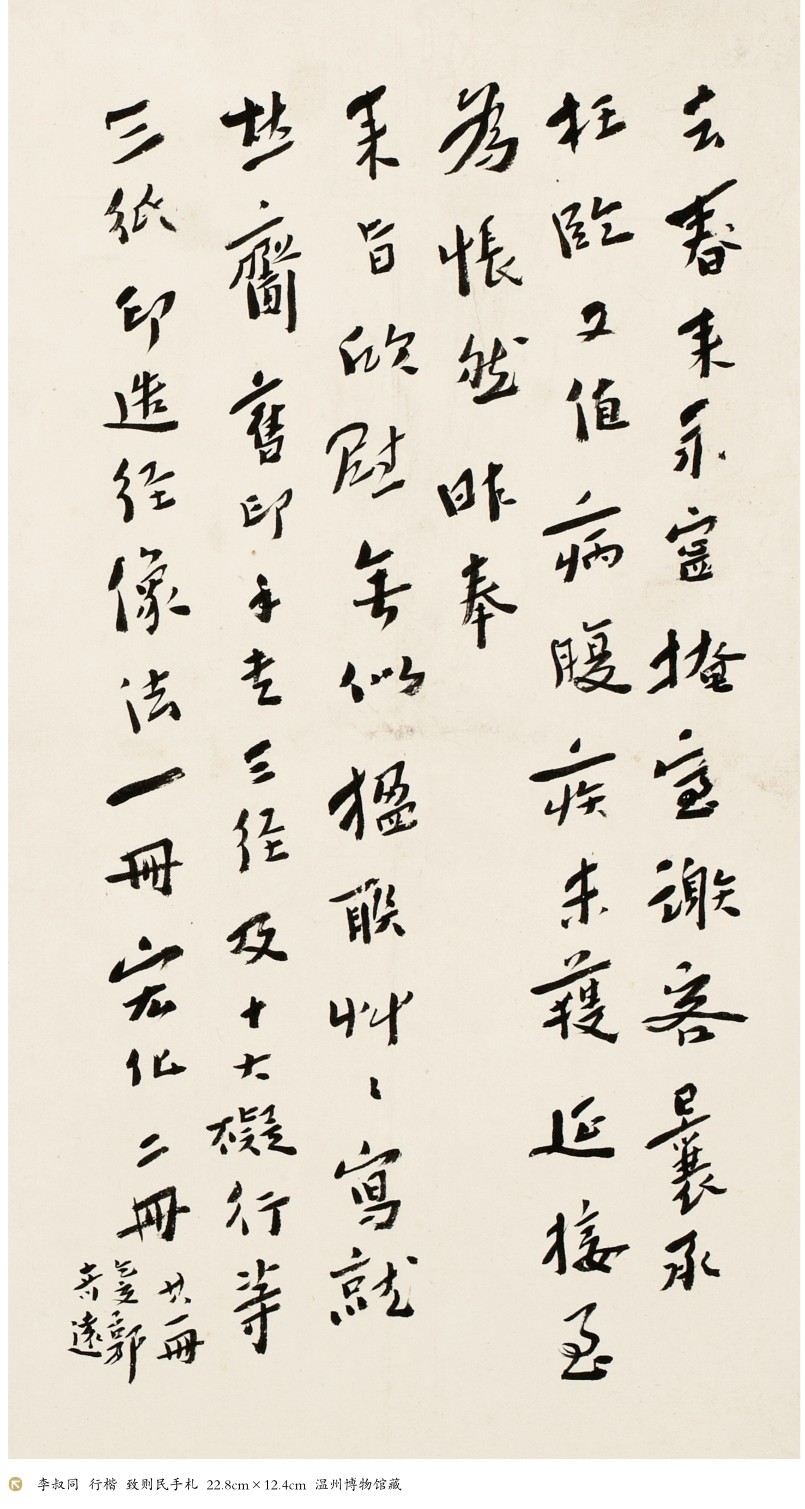 去春来永寍掩室謝客曩承
枉臨又值病腹疾未獲延接至
為悵然昨奉
来旨欣慰無似楹聯艸〻寫就
舊印手書三经及十大礙行等
三紙印造经像法一冊宏化二冊
一冊
郭
遠
李叔同 行楷 致则民手札 22.8cm×12.4cm 温州博物馆藏